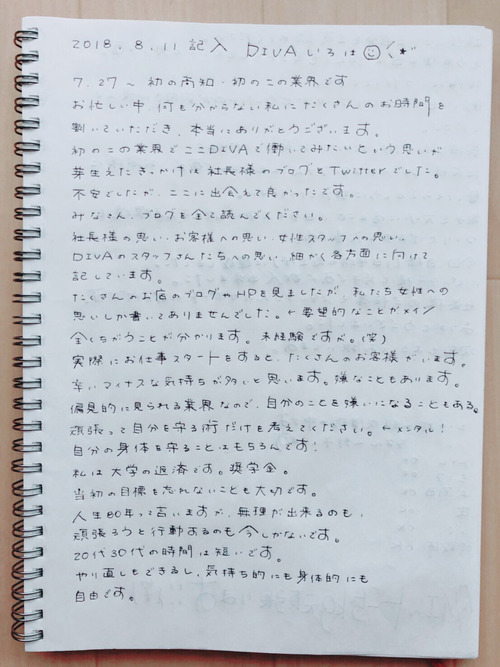 2018.8.11 記入 DIVA いろは
7.27〜 初の高知・初のこの業界です
お忙しい中、何も分からない私にたくさんのお時間を
割いていただき、本当にありがとうございます。
初のこの業界でここDIVAで働いてみたいという思いが
芽生えたきっかけは社長様のブログとTwitterでした。
不安でしたが、ここに出会えて良かったです。
みなさん、ブログを全て読んでください。
社長様の思い、お客様への思い、女性スタッフへの思い、
DIVAのスタッフさんたちへの思い、細かく各方面に向けて
記しています。
たくさんのお店のブログやHPを見ましたが、私たち女性への
思いしか書いてありませんでした。←要望的なことがメイン
全くちがうことが分かります。未経験ですが。(笑)
実際にお仕事スタートをすると、たくさんのお客様がいます。
辛いマイナスな気持ちが多いと思います。嫌なこともあります。
偏見的に見られる業界なので、自分のことを嫌いになることもある。
頑張って自分を守る術だけを考えてください。←メンタル!
自分の身体を守ることはもちろんです!
私は大学の返済です。奨学金。
当初の目標を忘れないことも大切です。
人生80年って言いますが、無理が出来るのも、
頑張ろうと行動するのも今しかないです。
20代30代の時間は短いです。
やり直しもできるし、気持ち的にも身体的にも
自由です。